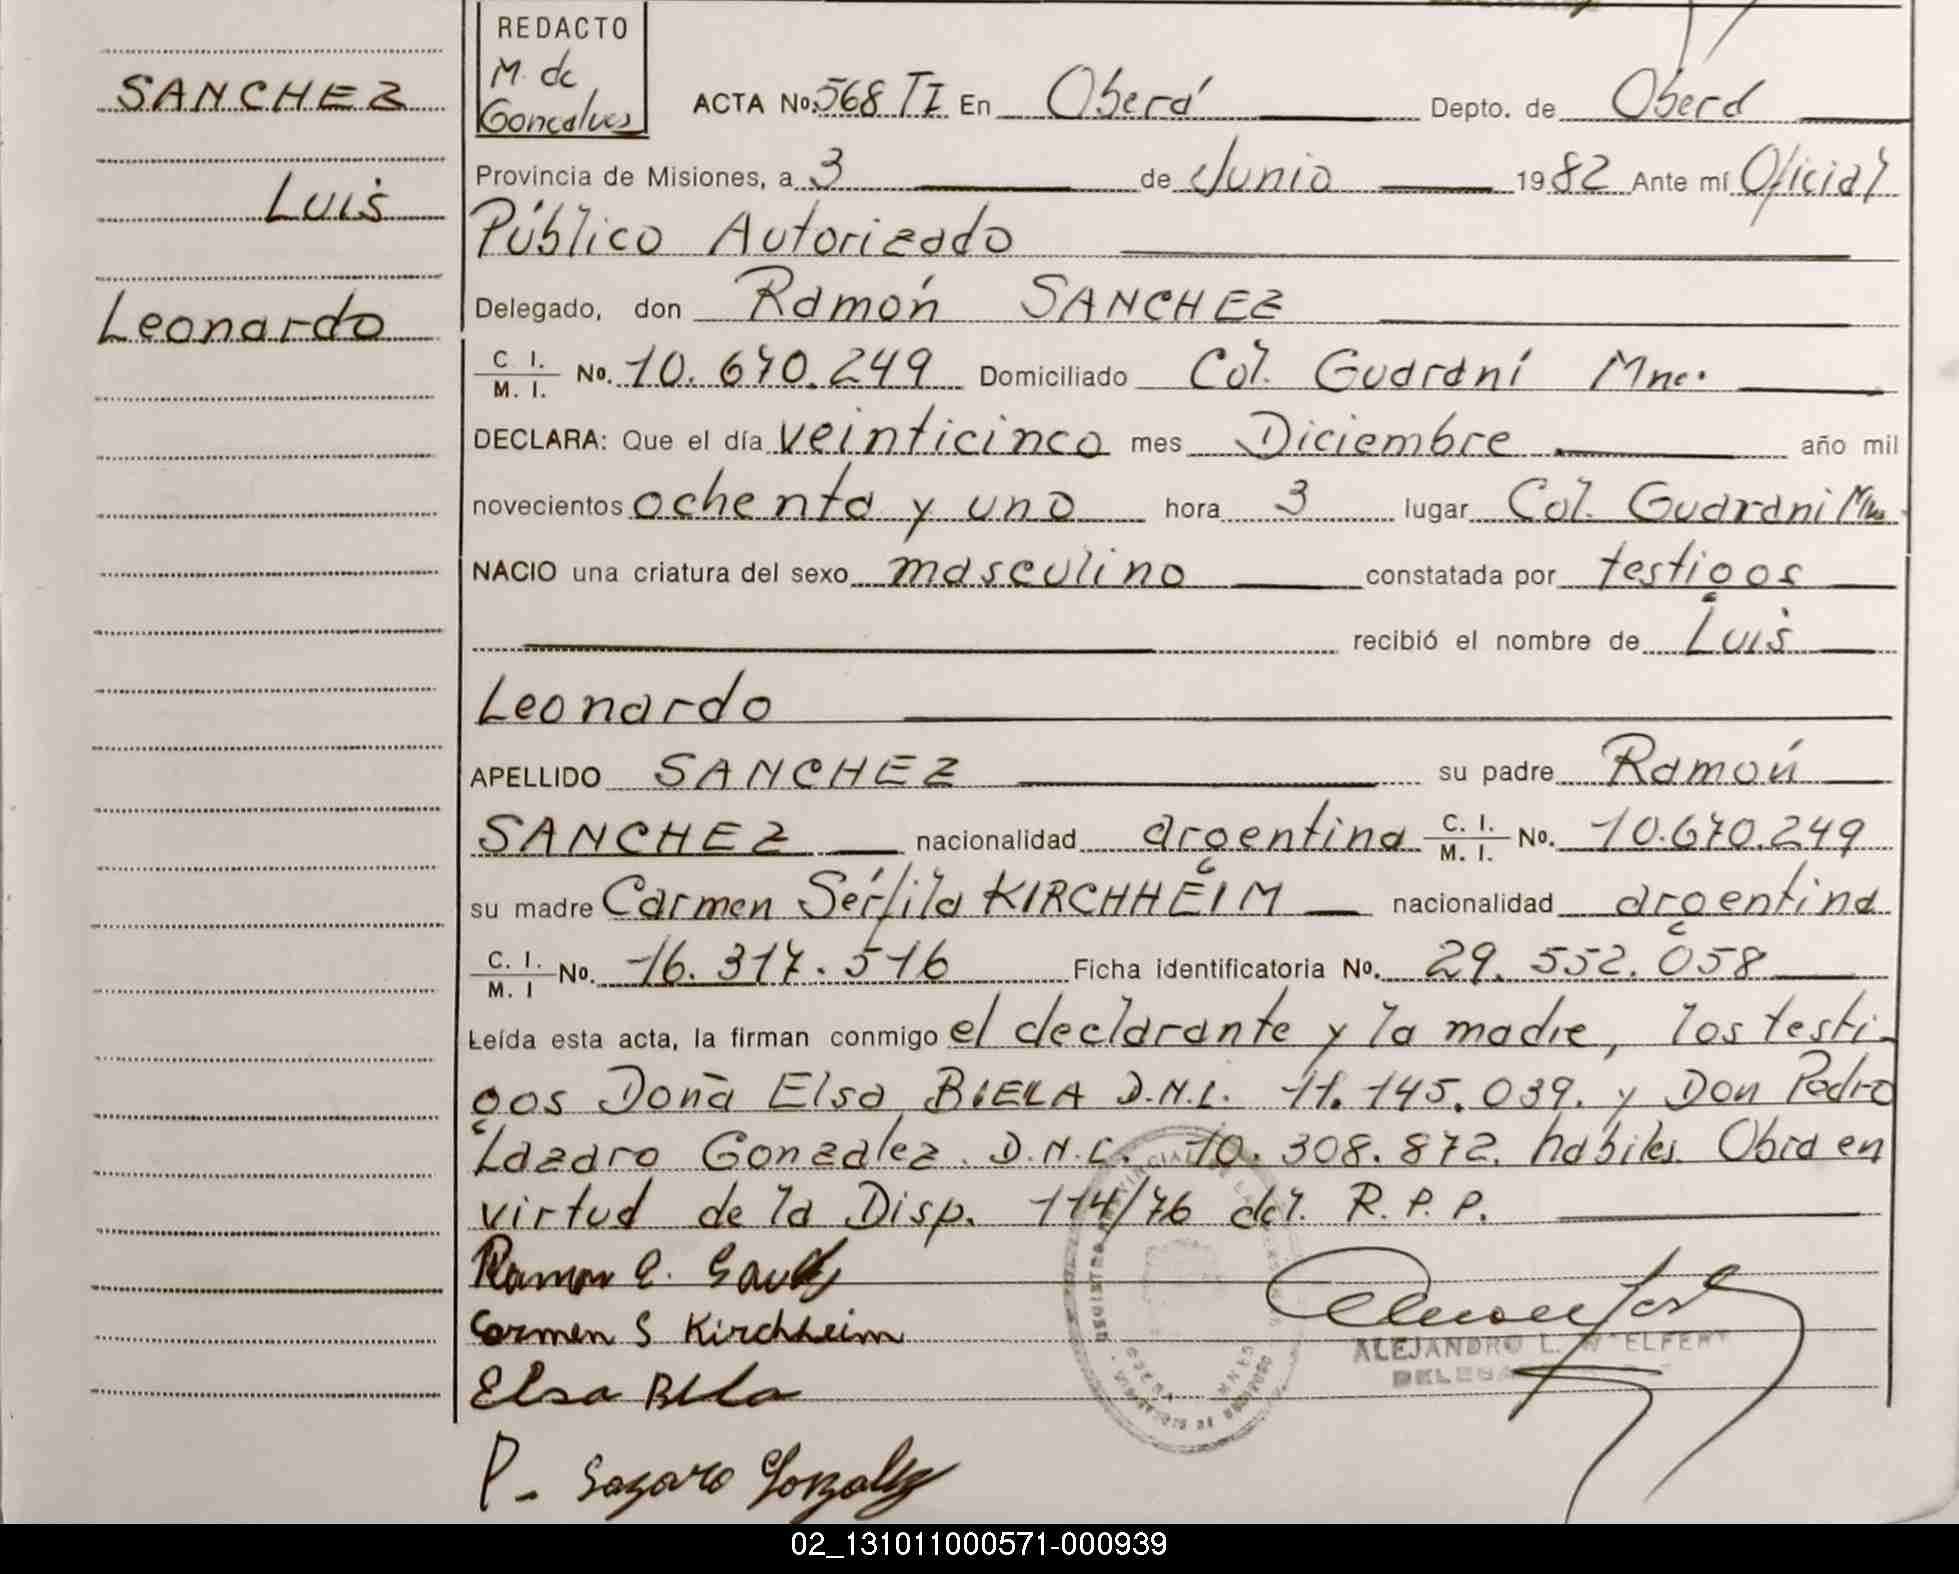 REDACTO
M. de
Goncalves
SANCHEZ
Luis
Leonardo
ACTA No. 568 TI En Oberá Depto. de Oberá
Provincia de Misiones, a 3 de Junio 1982 Ante mí Oficial
Público Autorizado
Delegado, don Ramón SANCHEZ
C. I. / M. I. No. 10.670.249 Domiciliado Col. Guaraní Mnes.
DECLARA: Que el día veinticinco mes Diciembre año mil
novecientos ochenta y uno hora 3 lugar Col. Guarani Mnes.
NACIO una criatura del sexo masculino constatada por testigos
recibió el nombre de Luis
Leonardo
APELLIDO SANCHEZ su padre Ramón
SANCHEZ nacionalidad argentina C. I. / M. I. No. 10.670.249
su madre Carmen Sérfila KIRCHHEIM nacionalidad argentina
C. I. / M. I No. 16.317.516 Ficha identificatoria No. 29.552.058
Leída esta acta, la firman conmigo el declarante y la madre, los testi-
gos Doña Elsa BIELA D.N.I. 11.145.039. y Don Pedro
Lazaro Gonzalez D.N.I. 10.308.872. habiles. Obra en
virtud de la Disp. 114/76 del. R.P.P.
Ramon
Carmen S Kirchheim
Elsa
ALEJANDRO L.
P. Lazaro Gonzalez
02_131011000571-000939